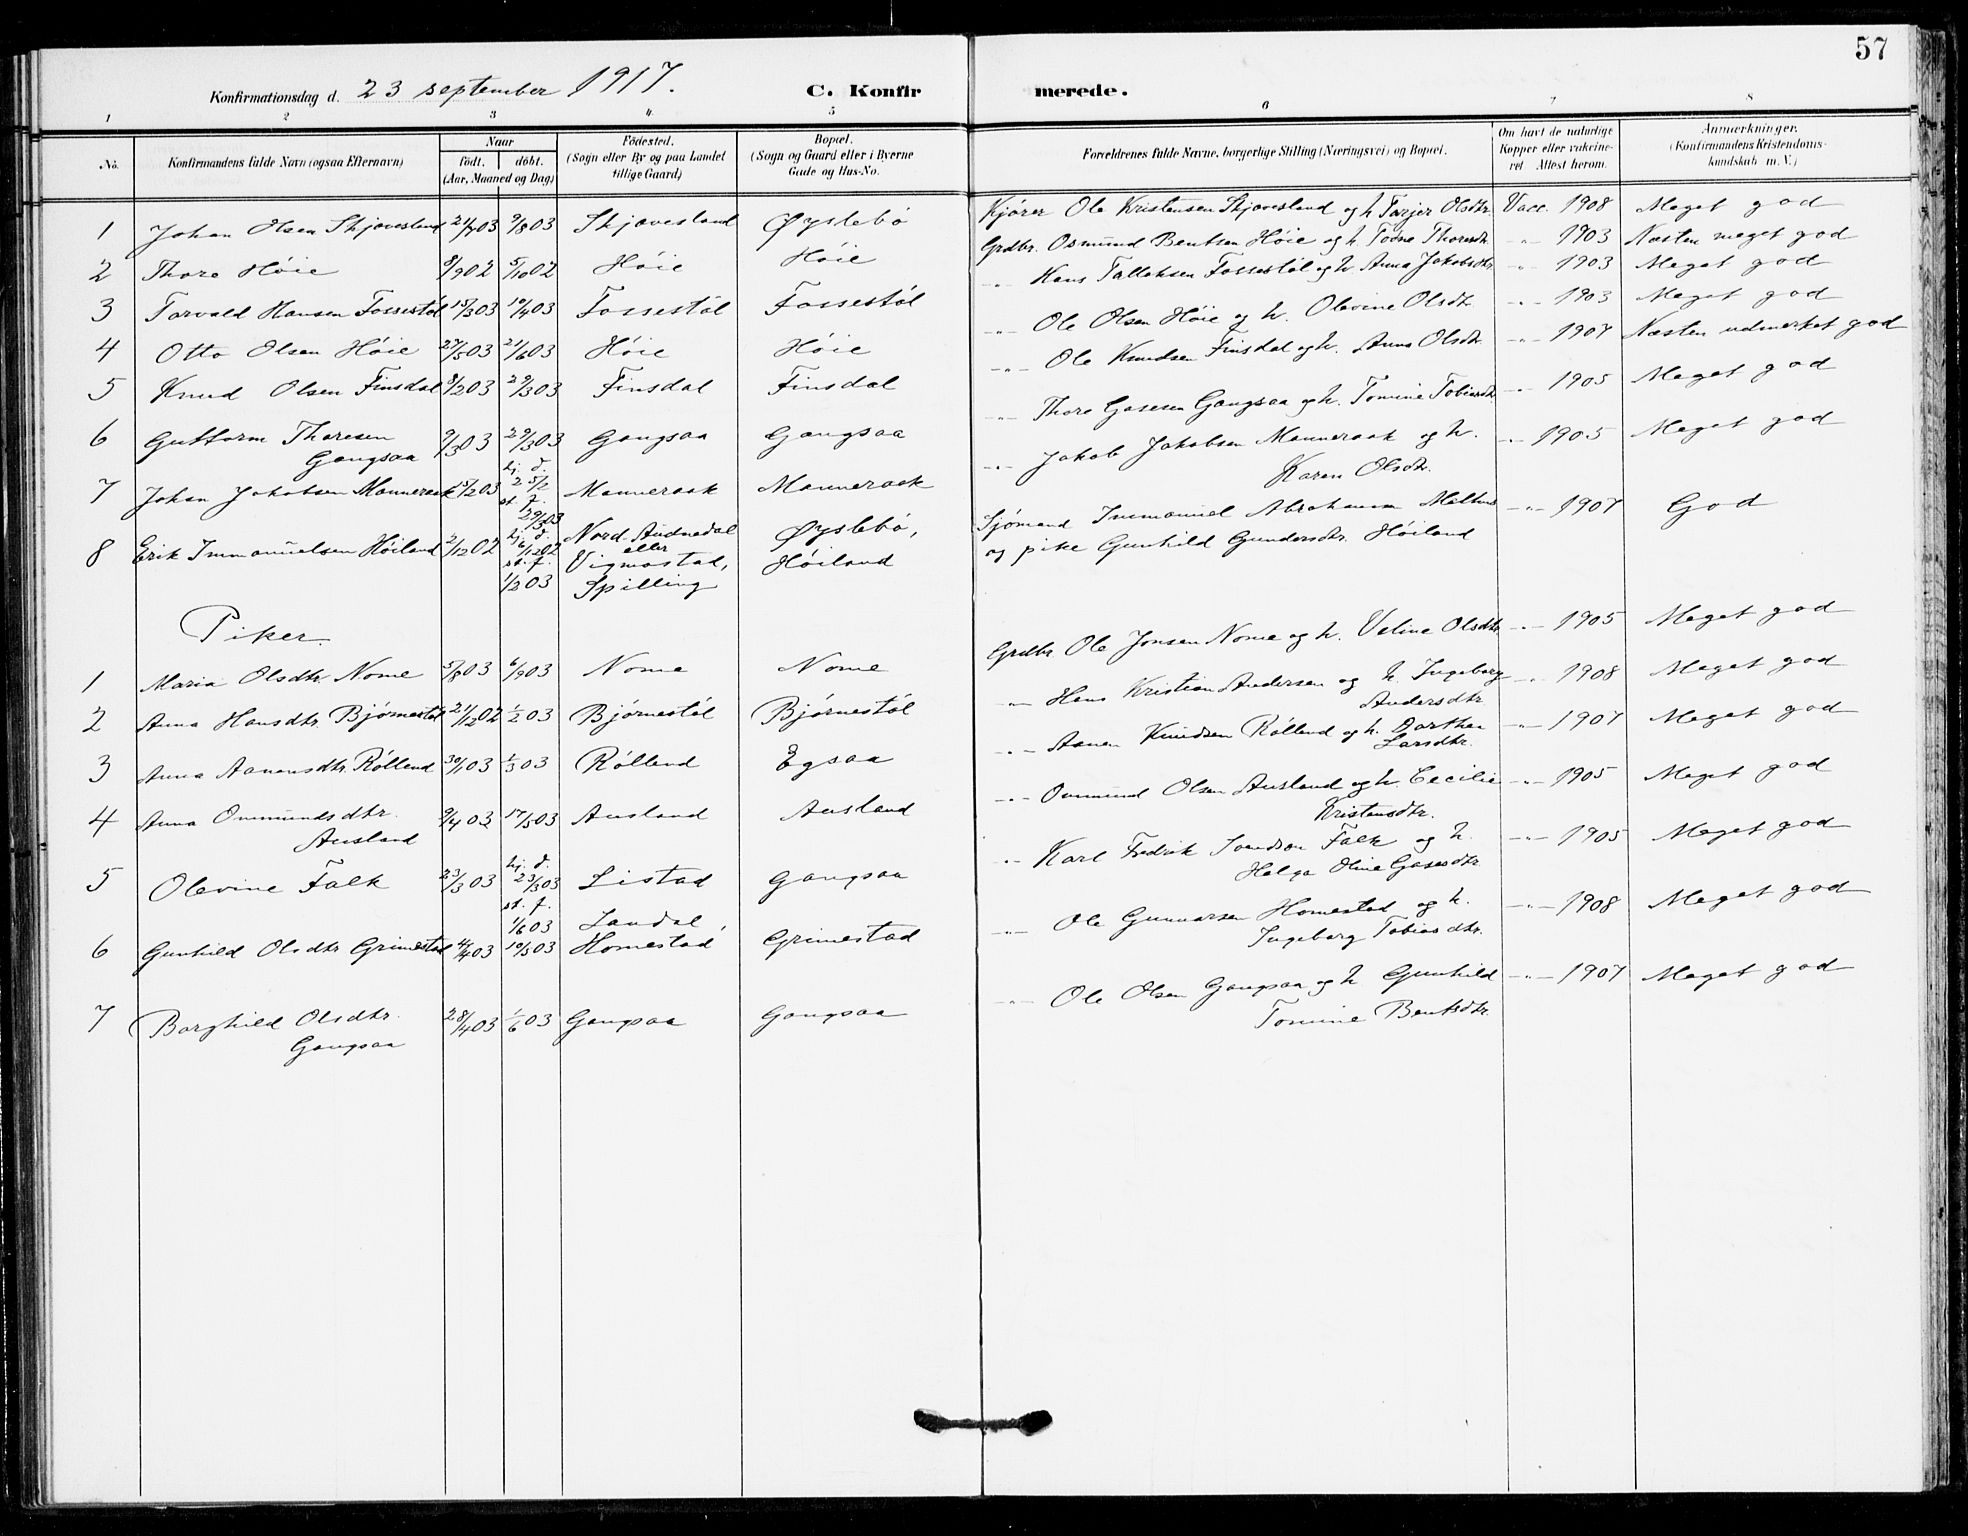 57
Konfirmationsdag d. 23 september 1917. C. Konfirmerede.
1 2 3 4 5 6 7 8
No. Konfirmandens fulde Navn (ogsaa Efternavn) Naar født, døbt. (Aar, Maaned og Dag) Fødested. (Sogn eller By og paa Landet tillige Gaard) Bopæl. (Sogn og Gaard eller i Byerne Gade og Hus-No. Forældrenes fulde Navne, borgerlige Stilling (Næringsvei) og Bopæl. Om havt de naturlige Kopper eller vakcineret Attest herom. Anmærkninger. (Konfirmandens Kristendomskundskab m. V.)
1 Johan Olsen Skjævesland 21/7 03 9/8 03 Skjævesland Øyslebø Kjører Ole Kristensen Skjævesland og h. Tarjer Olsdtr. Vacc. 1908 Meget god
2 Thore Høie 8/9 02 5/10 02 Høie Høie Grdbr. Osmund Bentsen Høie og h. Todne Thoresdtr. -"- 1903 Næsten meget god
3 Torvald Hansen Fossestøl 15/3 03 19/4 03 Fossestøl Fossestøl -"- Hans Tallaksen Fossestøl og h. Anna Jakobsdtr. -"- 1903 Meget god
4 Otto Olsen Høie 27/5 03 21/6 03 Høie Høie -"- Ole Olsen Høie og h. Olevine Olsdtr. -"- 1903 Meget god
5 Knud Olsen Finsdal 8/2 03 29/3 03 Finsdal Finsdal -"- Ole Knudsen Finsdal og h. Anna Olsdtr. -"- 1907 Næsten udmerket god
6 Guttorm Thoresen Gangsaa 9/3 03 29/3 03 Gangsaa Gangsaa -"- Thore Gasesen Gangsaa og h. Tomine Tobiasdtr. -"- 1905 Meget god
7 Johan Jakobsen Manneraak 15/2 03 hj. d. 25/2 st. f. 29/3 03 Manneraak Manneraak -"- Jakob Jakobsen Manneraak og h. Karen Olsdtr. -"- 1905 Meget god
8 Erik Immanuelsen Høiland 2/12 02 hj. d. 6/12 02 st. f. 1/2 03 Nord. Audnedal eller Vigmostad, Spilling Øyslebø, Høiland Sjømand Immanuel Abrahamsen og pike Gunhild Gundersdtr. Høiland -"- 1907 God
Piker.
1 Maria Olsdtr. Nome 5/8 03 6/9 03 Nome Nome Grdbr. Ole Jonsen Nome og h. Veline Olsdtr. -"- 1905 Meget god
2 Anna Hansdtr. Bjørnestøl 21/12 02 1/2 03 Bjørnestøl Bjørnestøl -"- Hans Kristian Andersen og h. Ingeborg Andersdtr. -"- 1908 Meget god
3 Anna Aanensdtr. Rølland 30/1 03 1/3 03 Rølland Egsaa -"- Aanen Knudsen Rølland og h. Dorthea Larsdtr. -"- 1907 Meget god
4 Anna Ommundsdtr. Ausland 9/4 03 17/5 03 Ausland Ausland -"- Ommund Olsen Ausland og h. Cecilie Kristensdtr. -"- 1905 Meget god
5 Olevine Falk 23/3 03 hj. d. 23/3 03 st. f. 1/6 03 Listad Gangsaa -"- Karl Fredrik Falk og h. Helga Oline Gasesdtr. -"- 1905 Meget god
6 Gunhild Olsdtr. Grimestad 4/4 03 10/5 03 Landal, Homestad Grimestad -"- Ole Gunnarsen Homestad og h. Ingeborg Tobiasdtr. -"- 1908 Meget god
7 Borghild Olsdtr. Gangsaa 28/4 03 1/6 03 Gangsaa Gangsaa -"- Ole Olsen Gangsaa og h. Gunhild Tomine Bentsdtr. -"- 1907 Meget god